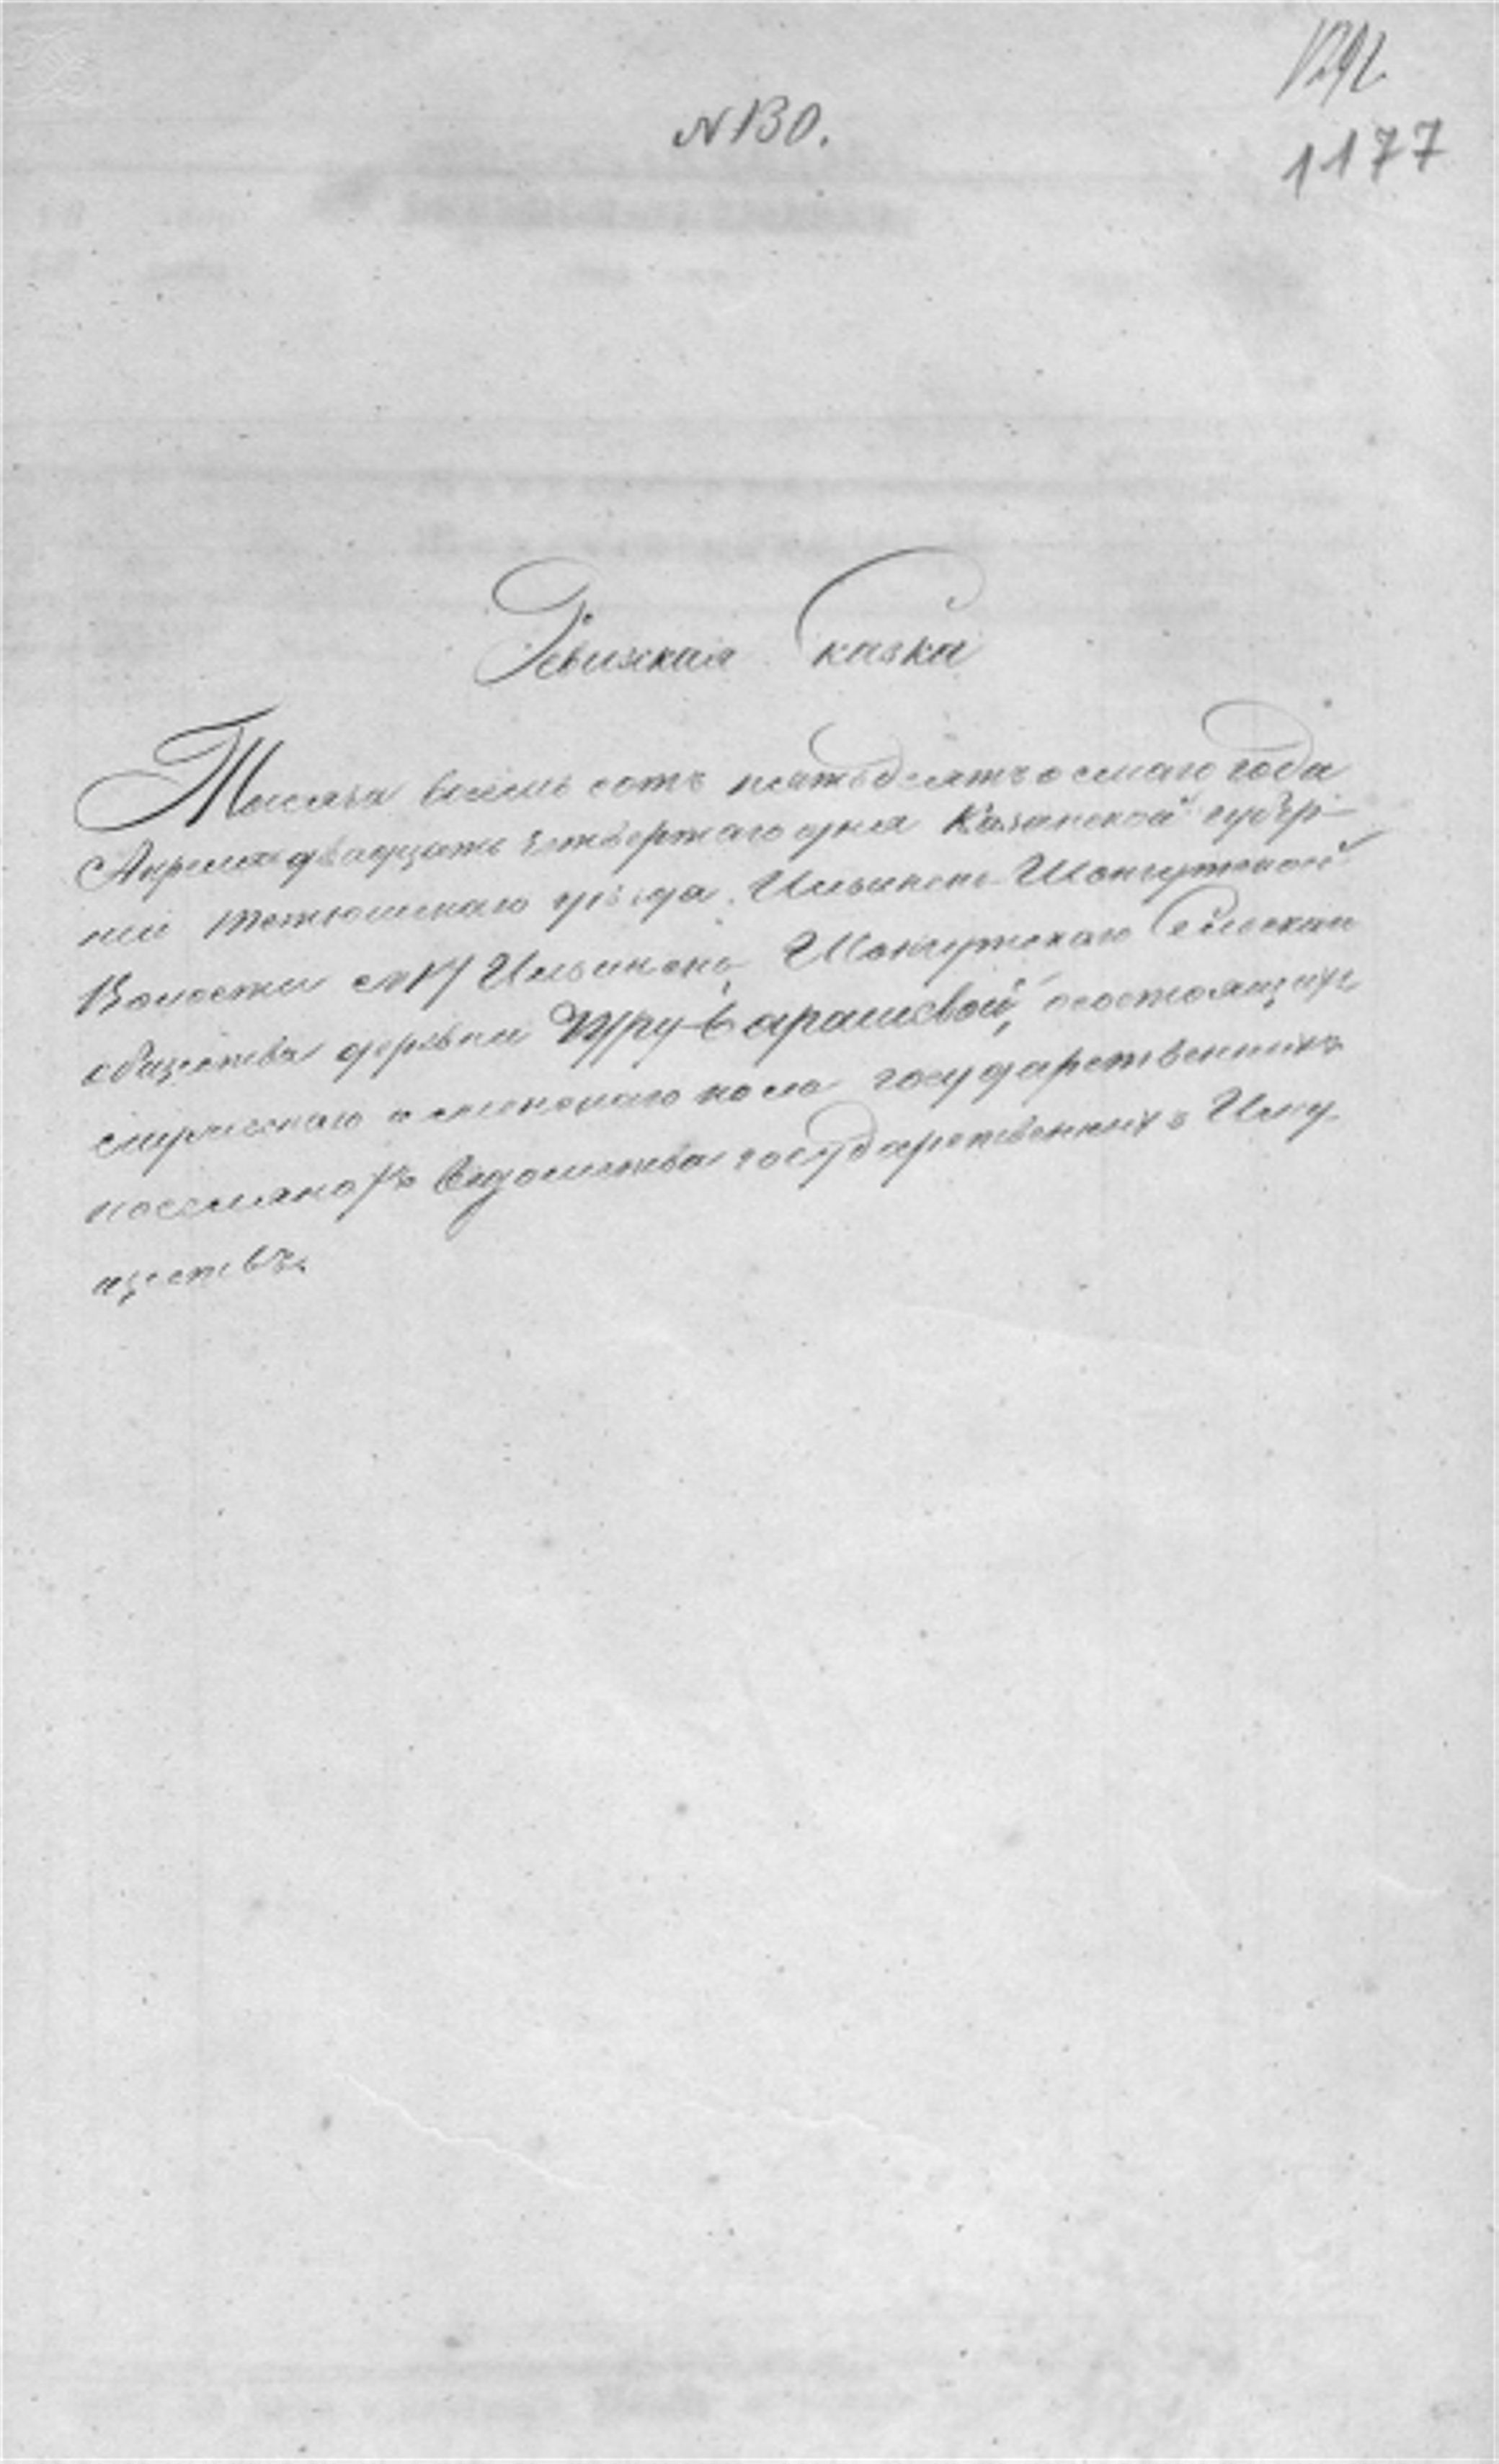 1292
№ 130.
1177
Ревизская Сказка
Тысяча восемь сотъ пятьдесятъ осмаго года
Апреля двадцать четвертаго дня Казанской губер-
нии Тетюшскаго уѣзда Ильинско-Шонгутской
Волости Ильинско-Шонгутскаго Сельскаго
общества деревни Уру-Барашевой, о состоящихъ
мужескаго и женскаго пола государственныхъ
поселянъ Ведомства государственныхъ Иму
ществъ.